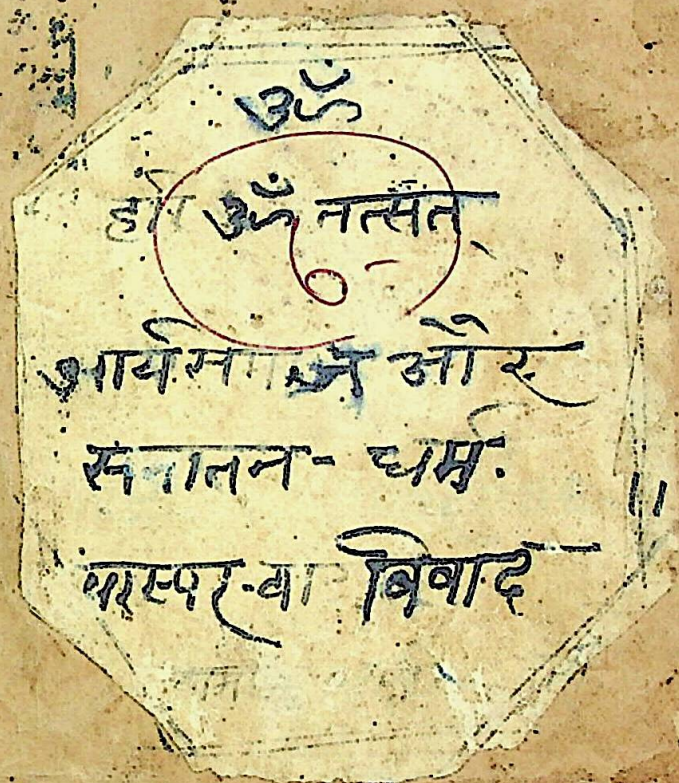 ॐ
ॐ तत्सत्
आर्यसमाज और
सनातन - धर्म.
परस्पर-वा विवाद